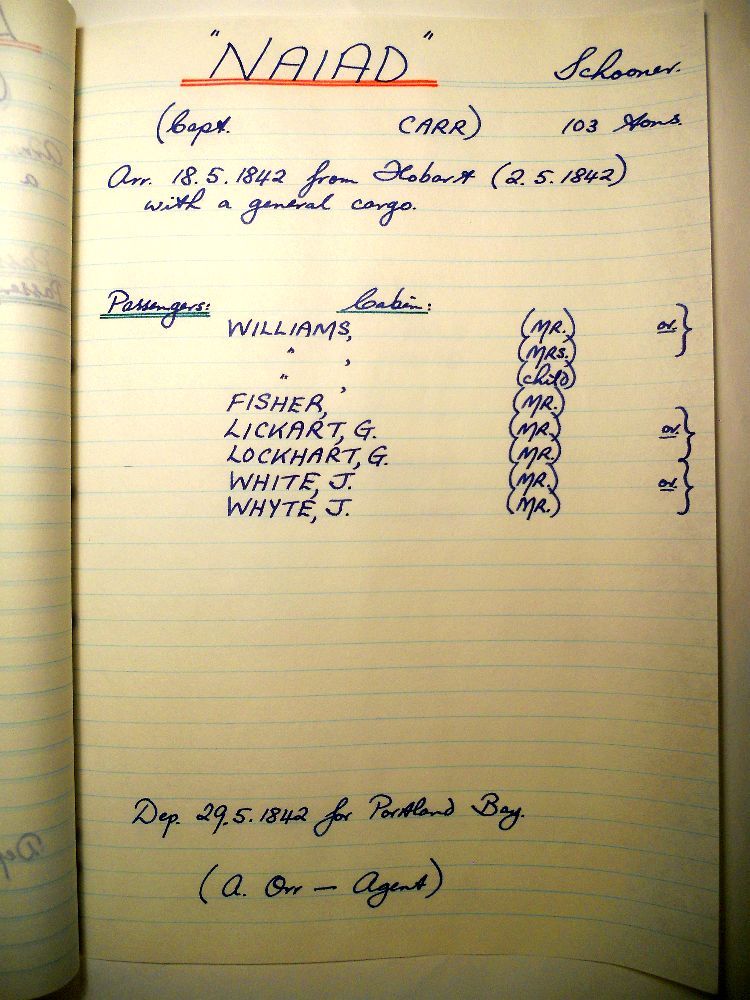 "NAIAD" Schooner.
(Capt. CARR) 103 tons.
Arr. 18.5.1842 from Hobart (2.5.1842)
with a general cargo.
Passengers: Cabin:
WILLIAMS, (MR.) or }
" , (MRS.)
" , (child)
FISHER, (MR.)
LICKART, G. (MR.) or }
LOCKHART, G. (MR.)
WHITE, J. (MR.) or }
WHYTE, J. (MR.)
Dep. 29.5.1842 for Portland Bay.
(A. Orr — Agent)